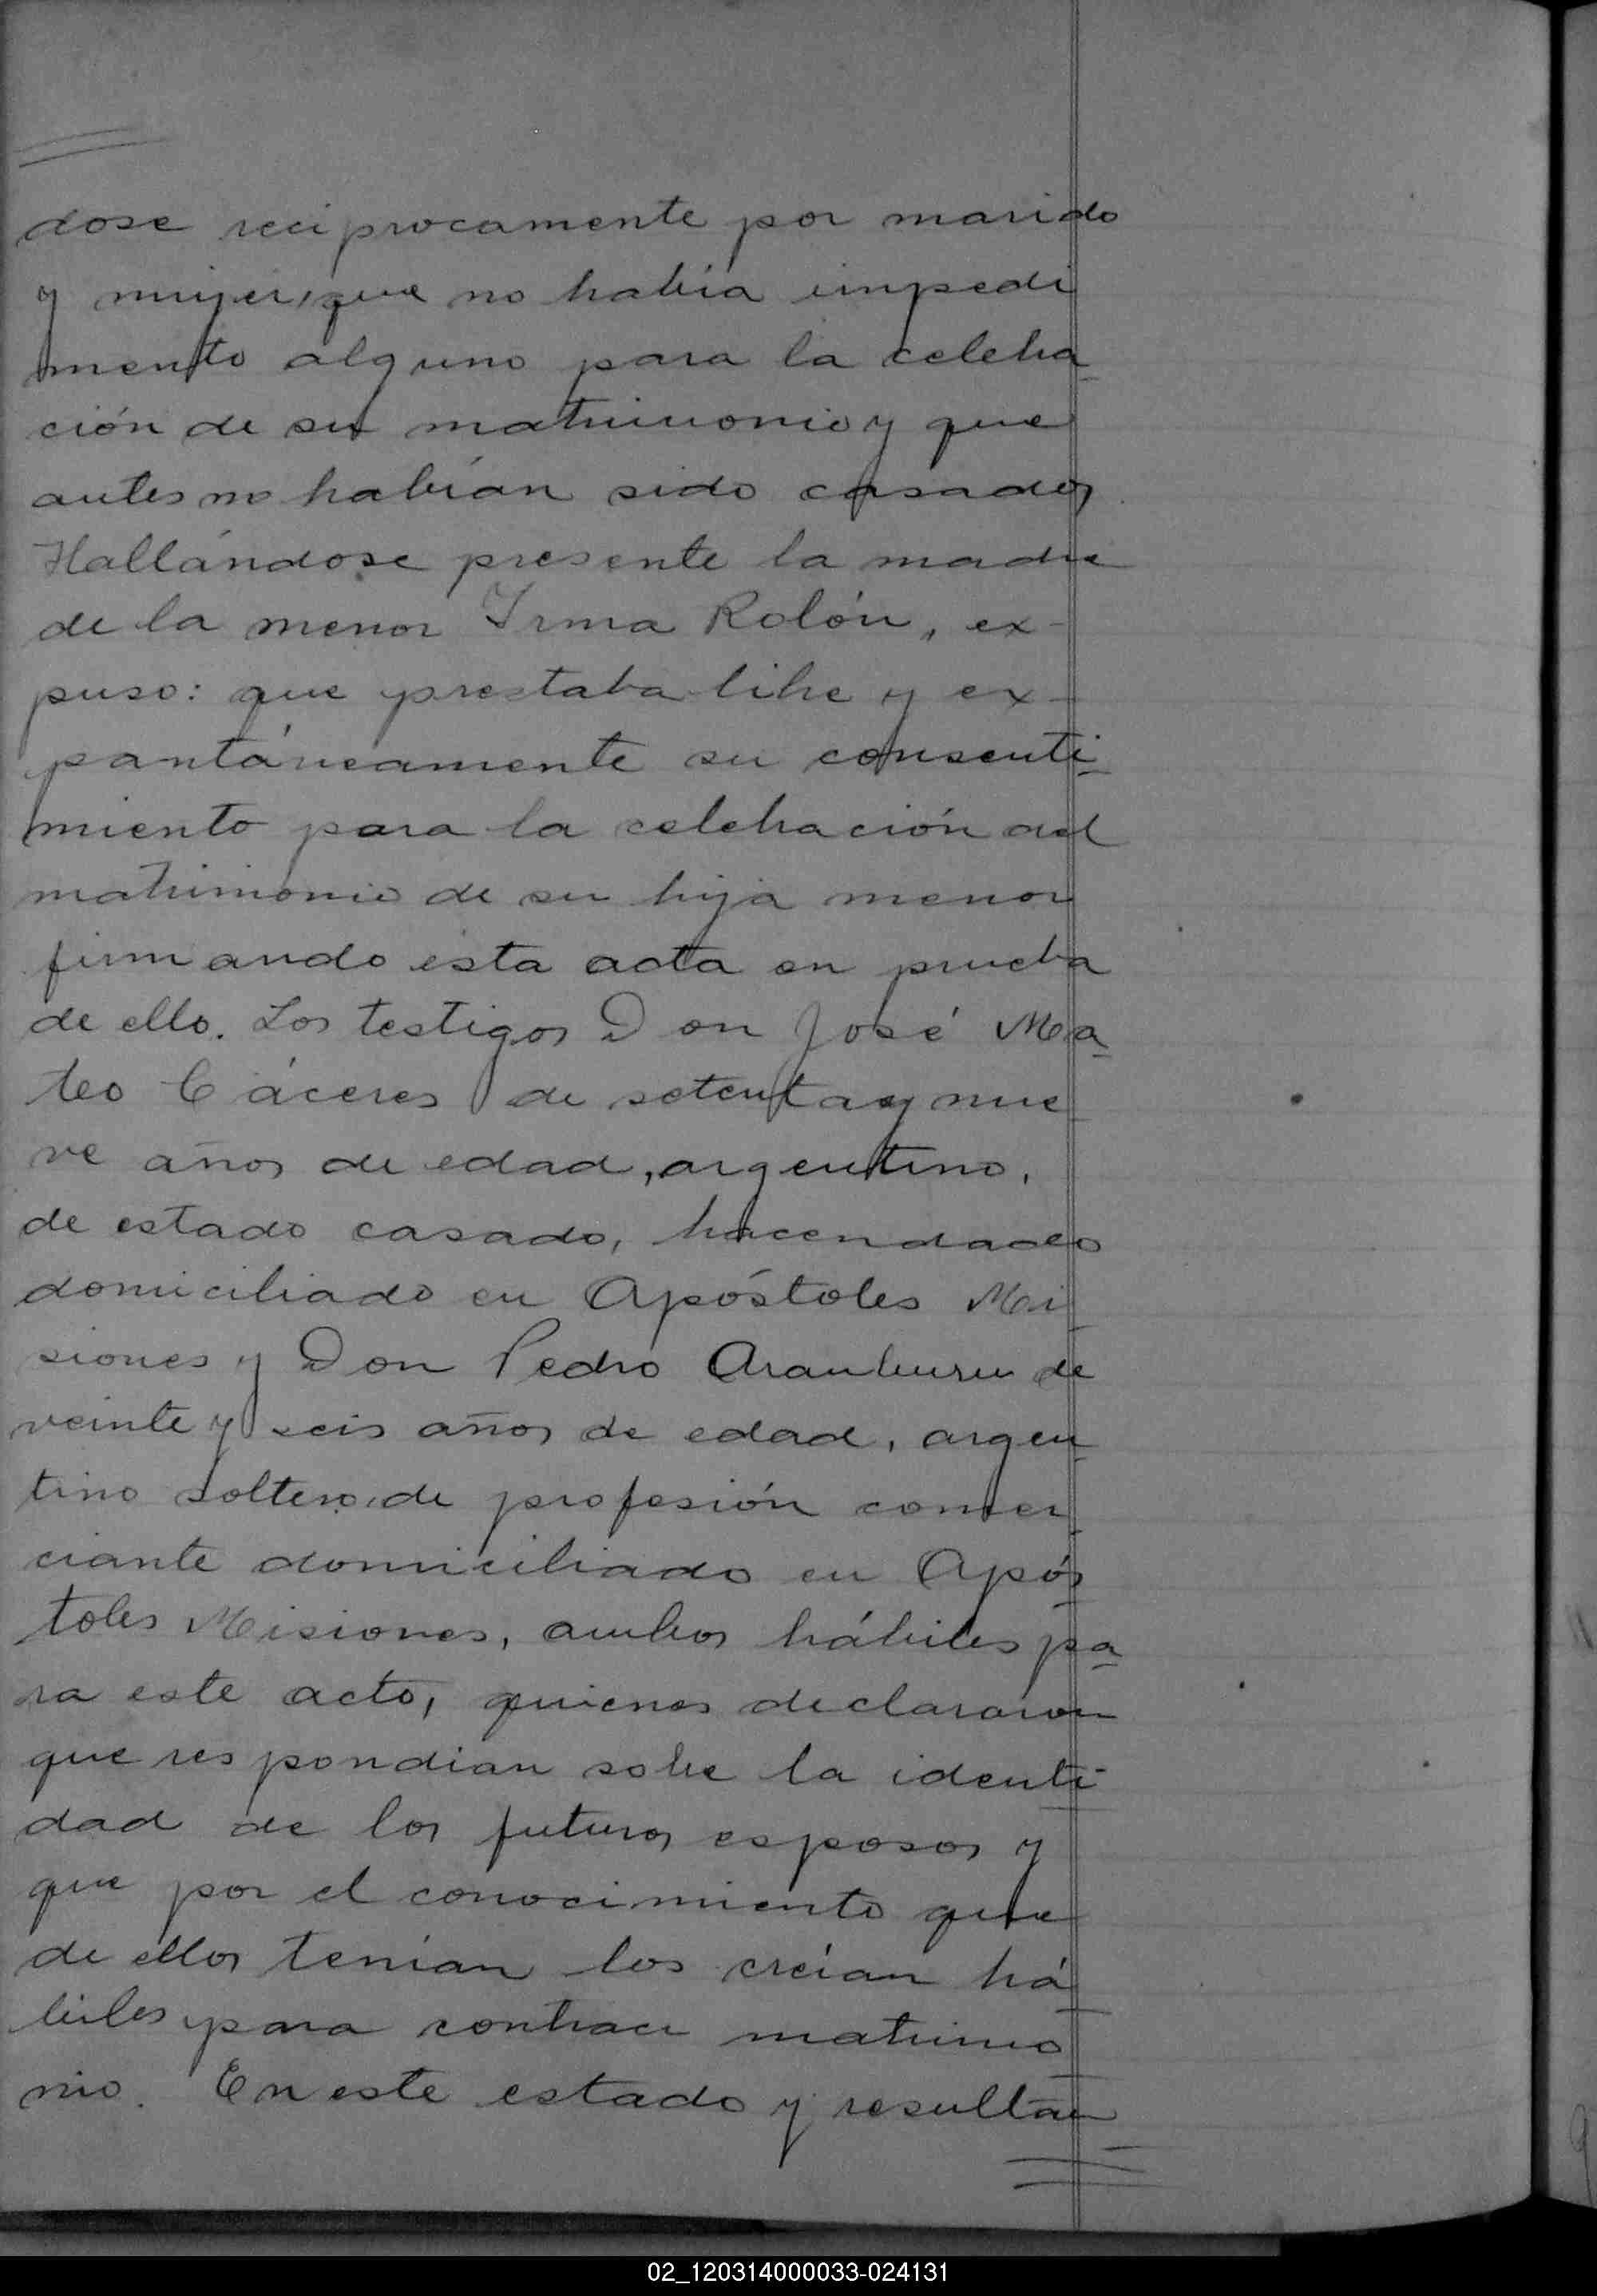 dose reciprocamente por marido
y mujer, que no había impedi
mento alguno para la celebra
ción de su matrimonio y que
antes no habían sido casados
Hallándose presente la madre
de la menor Irma Rolón, ex-
puso: que prestaba libre y ex-
pantáneamente su consenti-
miento para la celebración del
matrimonio de su hija menor
firmando esta acta en prueba
de ello. Los testigos Don José Ma-
teo Cáceres de setenta y nue
ve años de edad, argentino,
de estado casado, hacendado
domiciliado en Apóstoles Mi-
siones y Don Pedro Aramburu de
veinte y seis años de edad, argen-
tino soltero, de profesión comer-
ciante domiciliado en Após-
toles Misiones, ambos hábiles pa-
ra este acto, quienes declararon
que respondian sobre la identi-
dad de los futuros esposos y
que por el conocimiento que
de ellos tenían los creían há-
biles para contraer matrimo-
nio. En este estado y resultan
02_120314000033-024131